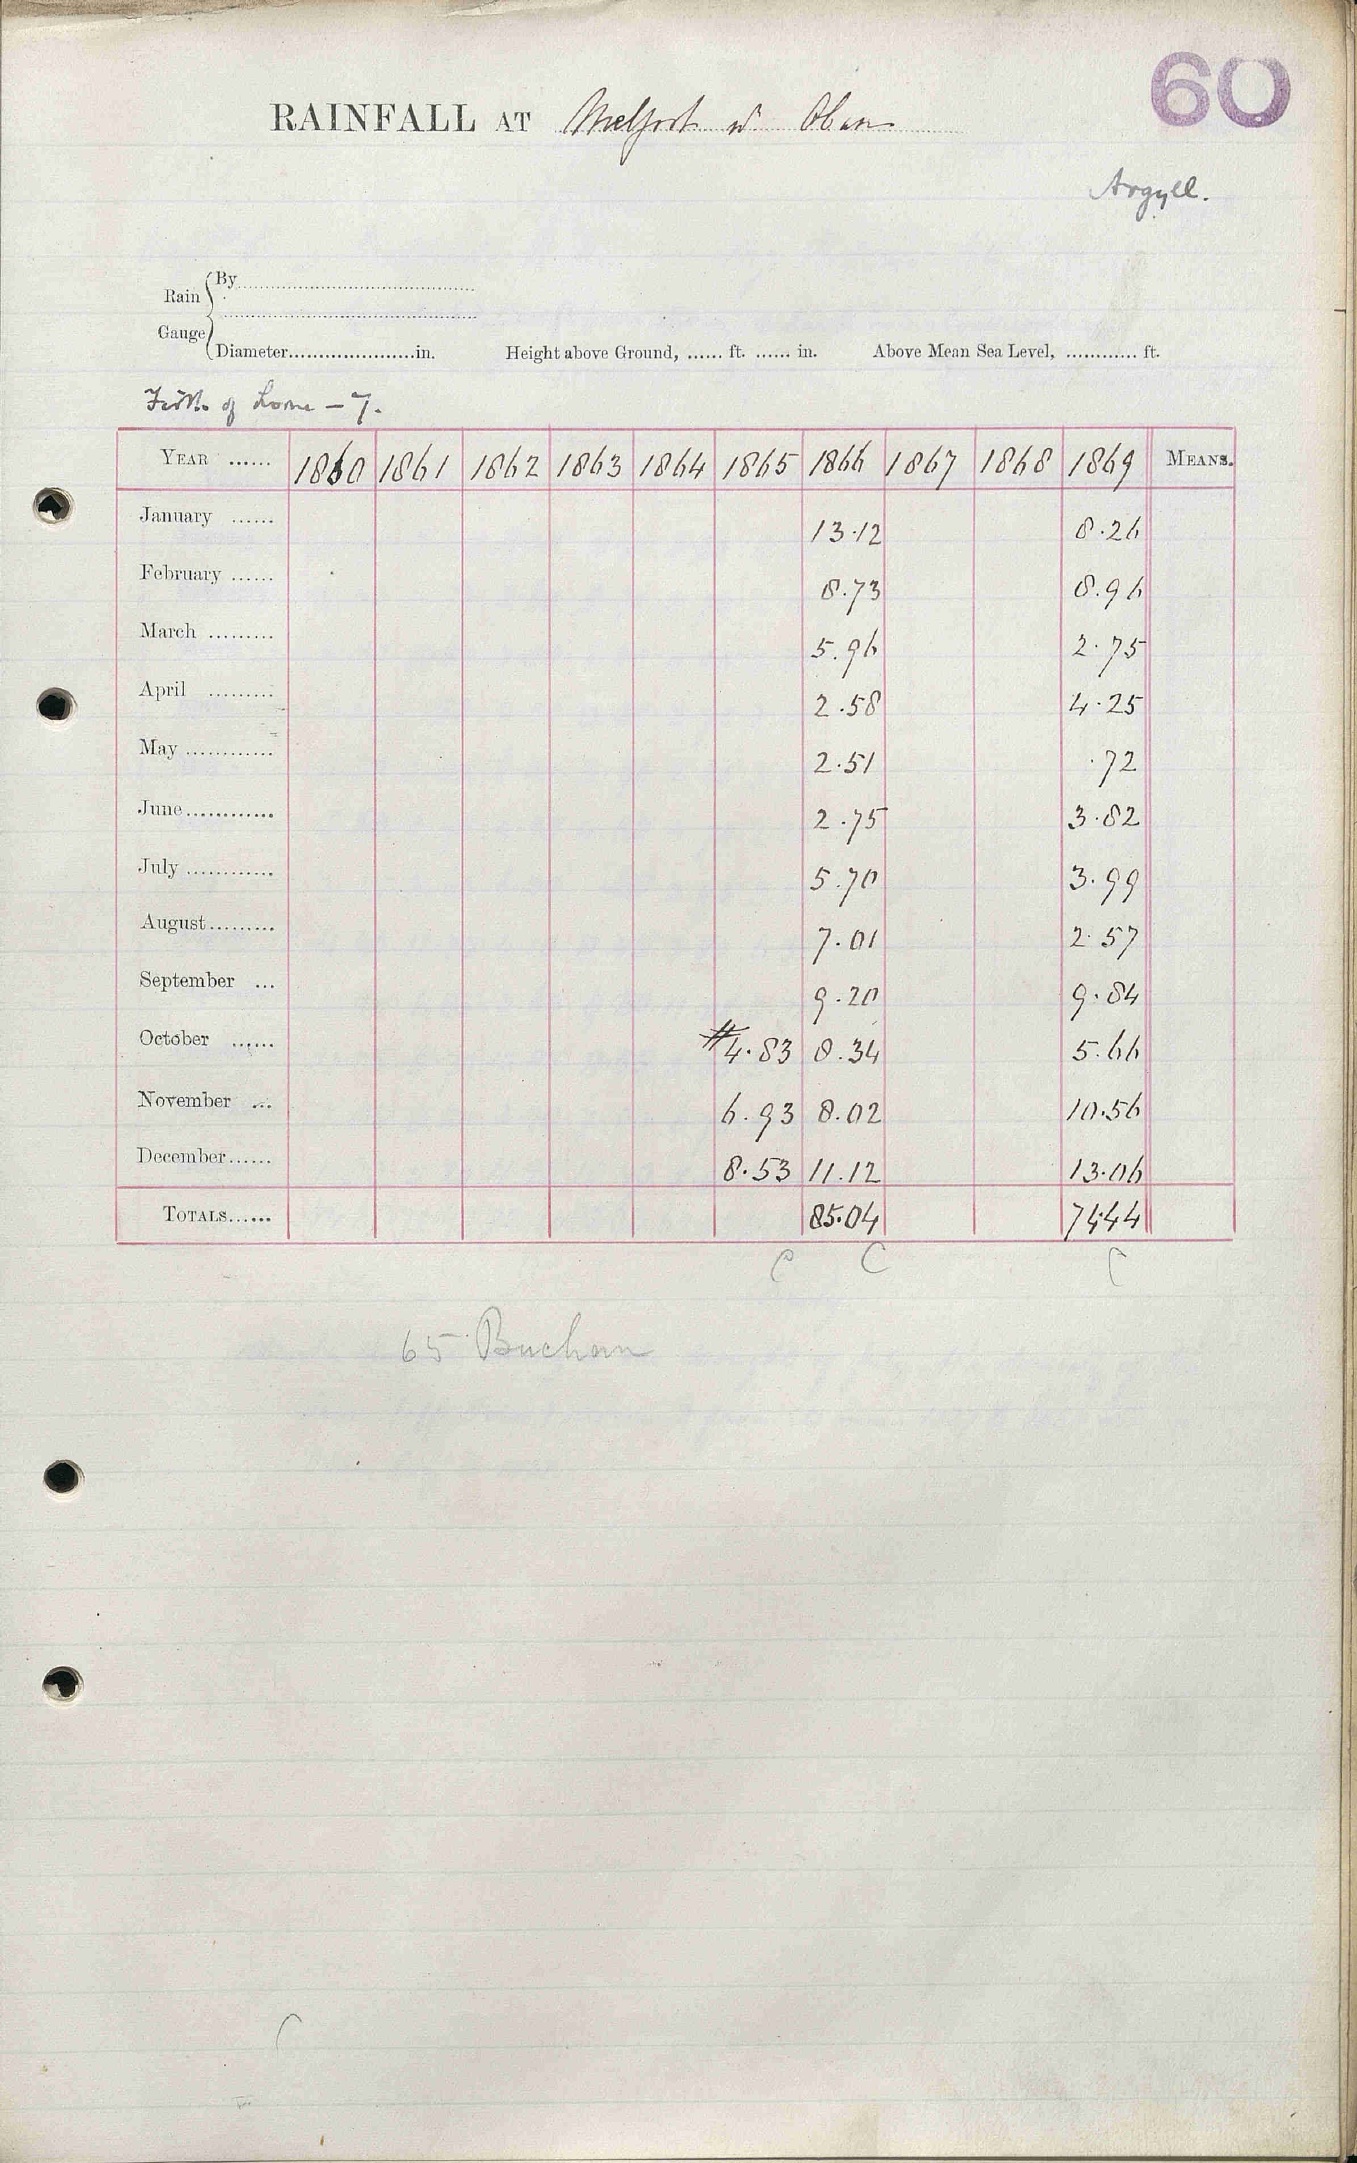 60
RAINFALL AT Melfort nr Oban
Argyll.
Rain Gauge { By ..............................
..............................
Diameter.....................in. Height above Ground, ...... ft. ...... in. Above Mean Sea Level, ............ ft.
Firth of Lorne - 7.
YEAR ...... 1860 1861 1862 1863 1864 1865 1866 1867 1868 1869 MEANS.
January ...... 13.12 8.26
February ...... 8.73 8.96
March ......... 5.96 2.75
April ......... 2.58 4.25
May ............ 2.51 .72
June............ 2.75 3.82
July ............ 5.70 3.99
August......... 7.01 2.57
September ... 9.20 9.84
October ...... #4.83 8.34 5.66
November ... 6.93 8.02 10.56
December...... 8.53 11.12 13.06
TOTALS...... 85.04 74.44
C C C
65 Buchan